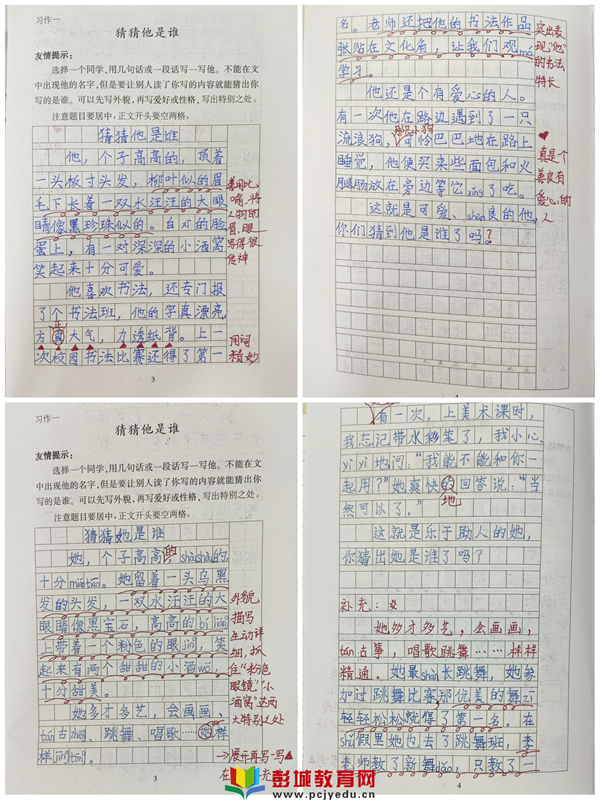 习作一
猜猜他是谁
友情提示：
选择一个同学，用几句话或一段话写一写他。不能在文
中出现他的名字，但是要让别人读了你写的内容就能猜出你
写的是谁。可以先写外貌，再写爱好或性格，写出特别之处。
注意题目要居中，正文开头要空两格。
猜猜他是谁
他，个子高高的，顶着
一头板寸头发，柳叶似的眉
毛下长着一双水汪汪的大眼
睛像黑珍珠似的。白xī的脸
蛋上，有一对深深的小酒窝
笑起来十分可爱。
他喜欢书法，还专门报
了个书法班，他的字真漂亮
方圆大气，力透纸背。上一
次校园书法比赛还得了第一
善用比
喻，将
人物的
眉、眼
写得很
传神
用词
精妙
3
名。老师还把他的书法作品
张贴在文化角，让我们观mó
学习。
他还是个有爱心的人。
有一次他在路边遇到了一只
流浪狗，可怜巴巴地在路上
那只小狗
睡觉，他便买来些面包和火
腿肠放在旁边等它xǐng了吃。
这就是可爱、shàn良的他，
你们猜到他是谁了吗？
突出表
现“他”
的书法
特长
真是个
善良有
爱心的
人
4
习作一
猜猜他是谁
友情提示：
选择一个同学，用几句话或一段话写一写他。不能在文
中出现他的名字，但是要让别人读了你写的内容就能猜出你
写的是谁。可以先写外貌，再写爱好或性格，写出特别之处。
注意题目要居中，正文开头要空两格。
猜猜她是谁
她，个子高高的，shòushòu的，
十分miáotiáo。她留着一头乌黑
发的头发，一双水汪汪的大
眼睛像黑宝石，高高的bí liáng
上带着一个粉色的眼jìng，笑
起来有两个甜甜的小酒wō，
十分甜美。
她多才多艺，会画画、
tán古zhēng、跳舞、唱歌……她样
样jīngtōng。
外貌
描写
生动详
细，抓
住“粉色
眼镜”“小
酒窝”这两
大特别之处
→展开再写一写
3
有一次，上美术课时，
我忘记带水彩笔了，我小心
yì yì地问：“我能不能和你一
起用？”她爽快的回答说：“当
地
然可以了。”
这就是乐于助人的她，
你猜出她是谁了吗？
补充：
她多才多艺，会画画，
tán古筝，唱歌跳舞……样样
精通。她最shàn长跳舞，她参
加过跳舞比赛那优美的舞zī
轻轻松松就得了第一名。在
shǔ假里她也去了跳舞班，李
老师教了新舞dǎo，只教了一
4
彭城教育网
www.pcjyedu.cn